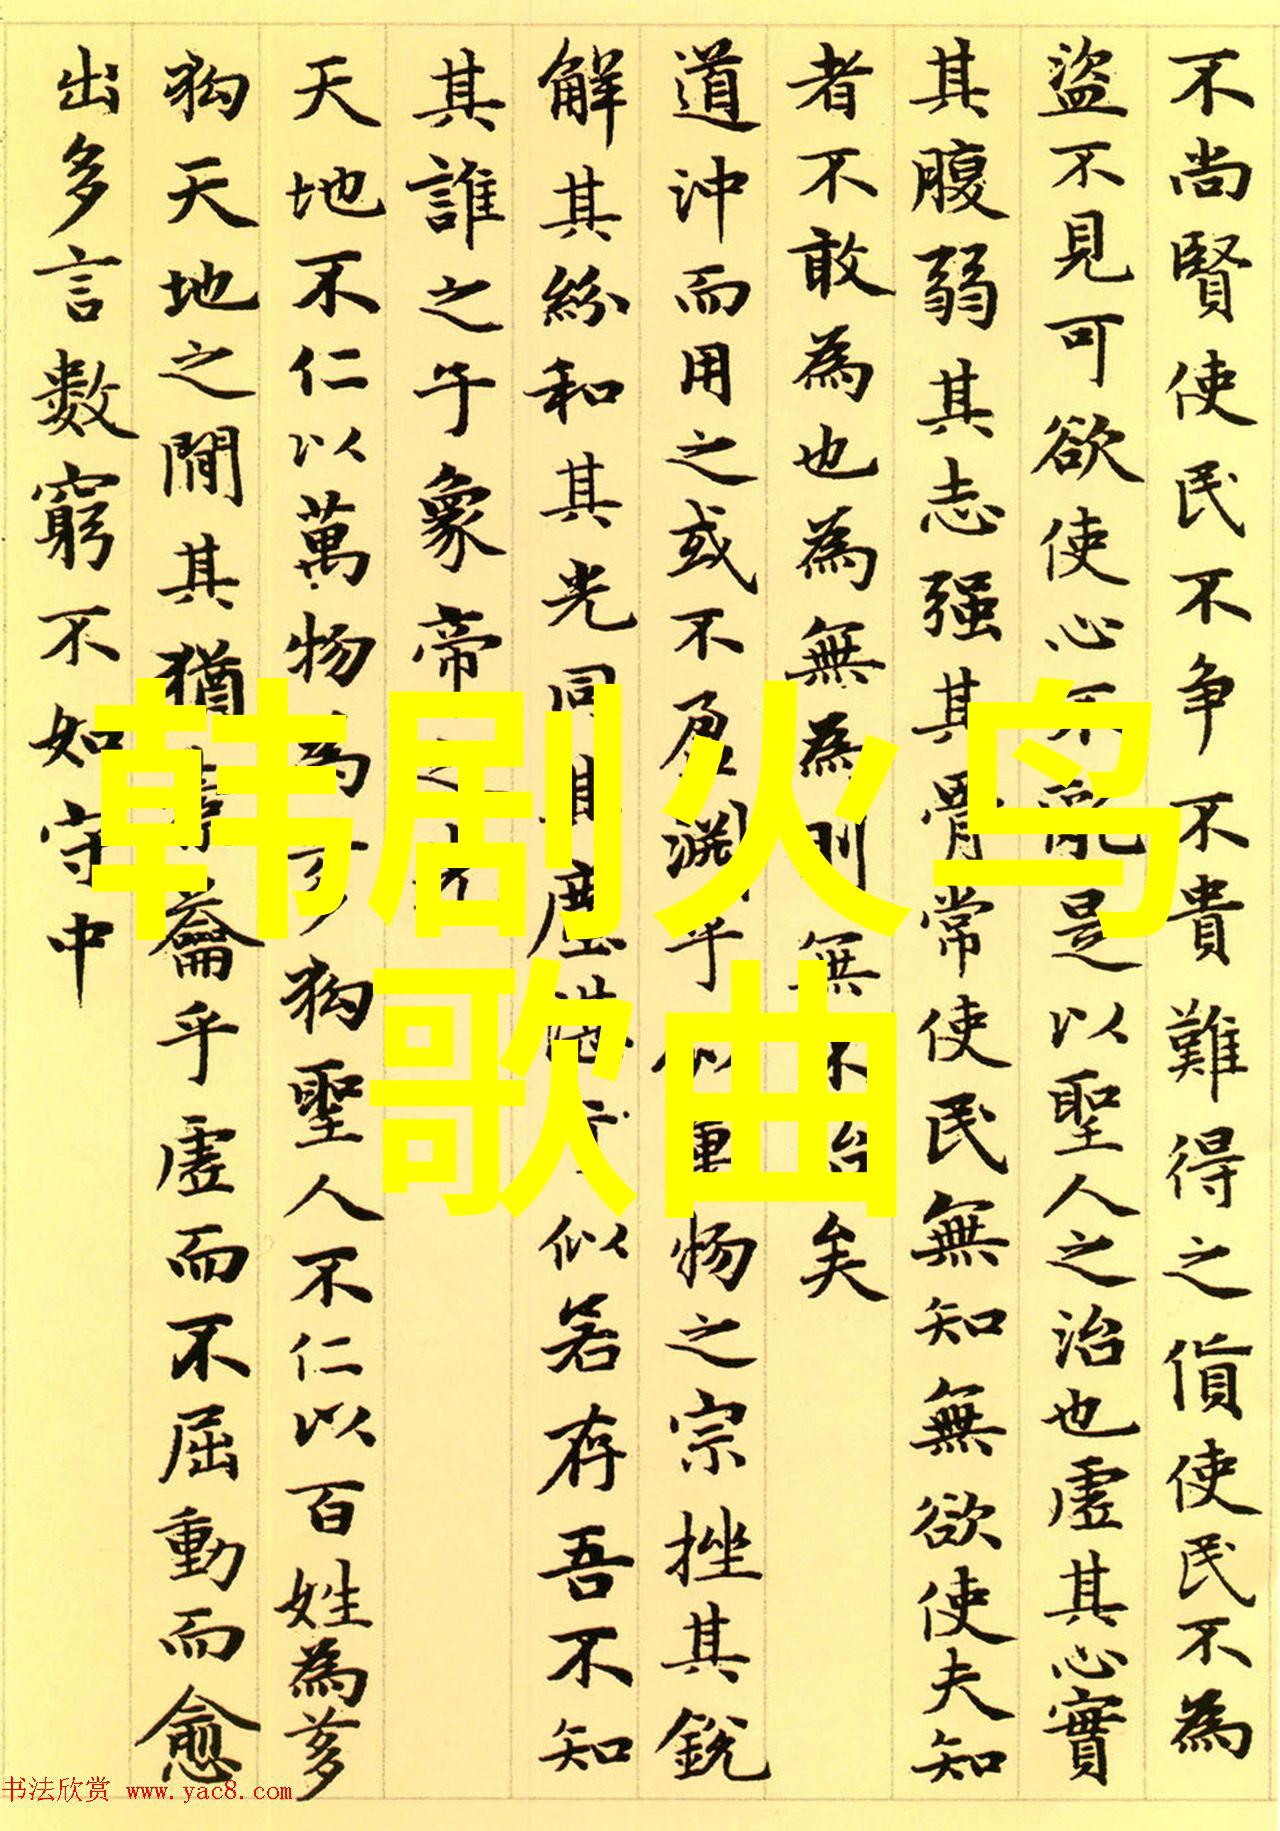 不尚賢使民不争不貴難得之貨使民不為
盜不見可欲使心不亂是以聖人之治也虛其心實
其腹弱其志强其骨常使民無知無欲使夫知
者不敢為也為無為則無不治矣
道沖而用之或不盈淵乎似物之宗挫其銳
解其紛和其光同其塵湛兮似若存吾不知
其誰之子象帝之先
天地不仁以萬物為芻狗聖人不仁以百姓為芻
狗天地之間其猶籥乎虛而不屈動而愈
出多言數窮不如守中
韩剧火鸟
歌曲
书法欣赏 www.yac8.com